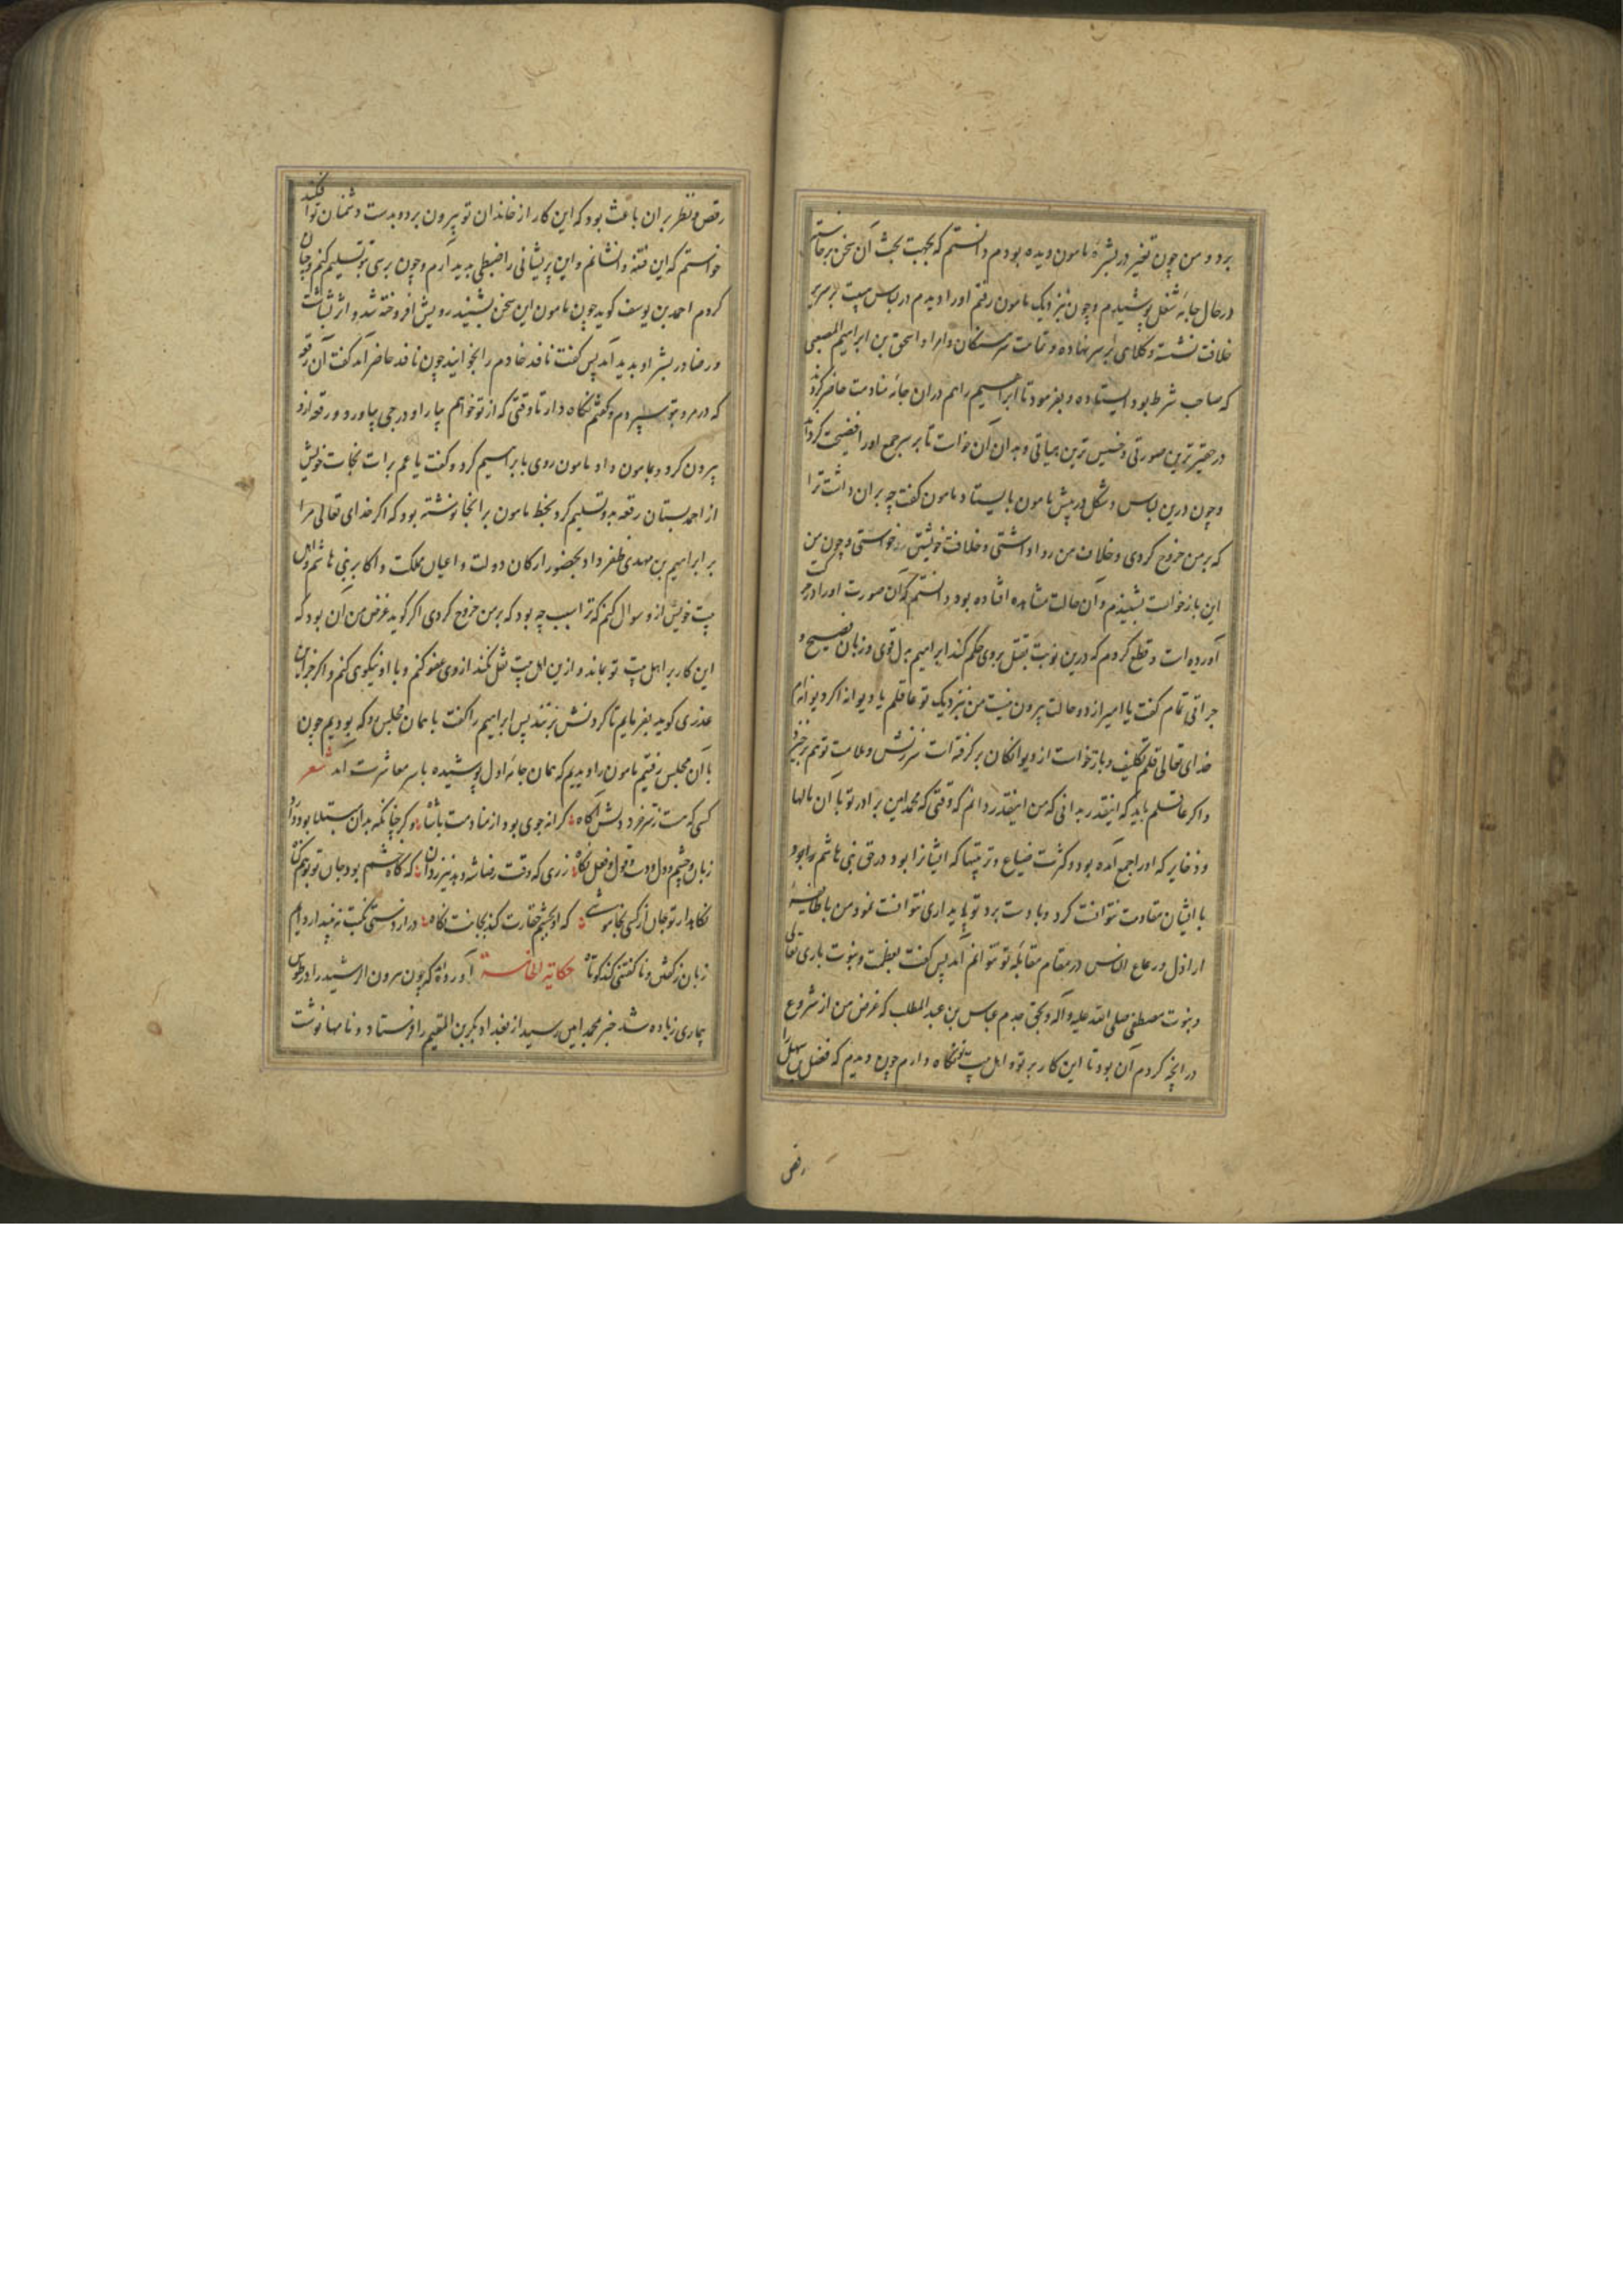 برد و من چون تغیر در بشرهٔ مامون دیده بودم دانستم که بجهت بحث آن سخن برخاستم
در حال جامهٔ شغل پوشیدم و چون نزدیک مامون رفتم او را دیدم در لباس هیبت بر سریر
خلافت نشسته و کلاهی بر سر نهاده و تمامت سرهنگان و امرا و اسحق بن ابراهیم المصعبی
که صاحب شرط بود ایستاده و بفرمود تا ابراهیم را هم در ان جامهٔ منادمت حاضر کردند
در حقیرترین صورتی و خسیس‌ترین هیاتی و بدان آن خواست تا بر سر جمع او را فضیحت کرداند
و چون درین لباس و شکل در پیش مامون بایستاد مامون گفت چه بر ان داشت ترا
که بر من خروج کردی و خلاف من روا داشتی و خلافت خویشتن را خواستی و چون من
این بازخواست بشنیدم و آن حالت مشاهده افتاده بود دانستم که آن صورت او را در حرکت
آورده است و قطع کردم که درین نوبت بقتل بروی حکم کند ابراهیم بدل قوی و زبان فصیح و
جراتی تمام گفت یا امیر از دو حالت بیرون نیست من نزدیک تو عاقلم یا دیوانه اکر دیوانه‌ام
خدای تعالی قلم تکلیف و بازخواست از دیوانکان بر گرفته است سرزنش و ملامت تو هم برخیزد
و اکر عاقلم باید که اینقدر بدانی که من اینقدر دانم که وقتی که محمد امین برادر تو با ان مالها
و ذخایر که او را جمع آمده بود و کثرت ضیاع و تربیتها که ایشانرا بود در حق بنی هاشم
با ایشان مقاومت نتوانست کرد و با دست برد تو پایداری نتوانست نمود من با طایفهٔ
اراذل و رعاع الناس در مقام مقابلهٔ تو نتوانم آمد پس گفت بعظمت و بنوت باری تعالی
و نبوت مصطفی صلی الله علیه و آله و بحق جدم عباس بن عبد المطلب که غرض من از شروع
در انچه کردم آن بود تا این کار بر تو و اهل بیت تو نگاه دارم چون دیدم که فضل سهل را
رقص
رقص و نظر بر ان باعث بود که این کار از خاندان تو بیرون برد و بدست دشمنان تو افکند
خواستم که این فتنه وانشانم و این پریشانی را ضبطی پدید آرم و چون برسی بتو تسلیم کنم و چنان
کردم احمد بن یوسف کوید چون مامون این سخن بشنید رویش افروخته شد و اثر بشاشت
و رضا در بشرهٔ او پدید آمد پس گفت نافد خادم را بخوانید چون نافد حاضر آمد گفت آن رقعه
که در مرو بتو سپردم و گفتم نگاه دار تا وقتی که از تو خواهم بیار او درجی بیاورد و رقعه ازو
بیرون کرد و بمامون داد مامون روی بابراهیم کرد و گفت یا عم برات نجات خویش
از احمد بستان رقعه بدو تسلیم کرد بخط مامون بر انجا نوشته بود که اکر خدای تعالی مرا
بر ابراهیم بن مهدی ظفر داد بحضور ارکان دولت و اعیان مملکت و اکابر بنی هاشم و اهل
بیت خویش ازو سوال کنم که ترا سبب چه بود که بر من خروج کردی اکر کوید غرض من آن بود که
این کار بر اهل بیت تو بماند و ازین اهل بیت نقل نکند از وی عفو کنم و با او نیکوی کنم و اکر جز این
عذری کوید بفرمایم تا کردنش بزنند پس ابراهیم را گفت با همان مجلس رو که بودیم چون
با آن مجلس رفتیم مامون را دیدیم که همان جامهٔ اول پوشیده باسر معاشرت آمد شعر
کسی که هست ز سر خرد دلش آگاه کرانه جوی بود از منادمت با شاه
زبان و چشم و دل و دست و قول و فعل نگاه
نگاه دار تو جان از کسی که او بچشم حقارت کند بجانت نگاه
حکایة الخامسة آورده‌اند که چون هرون الرشید را در طوس
بیماری زیاده شد خبر بمحمد امین رسید از بغداد بکر بن المعتمر را فرستاد و نامها نوشت